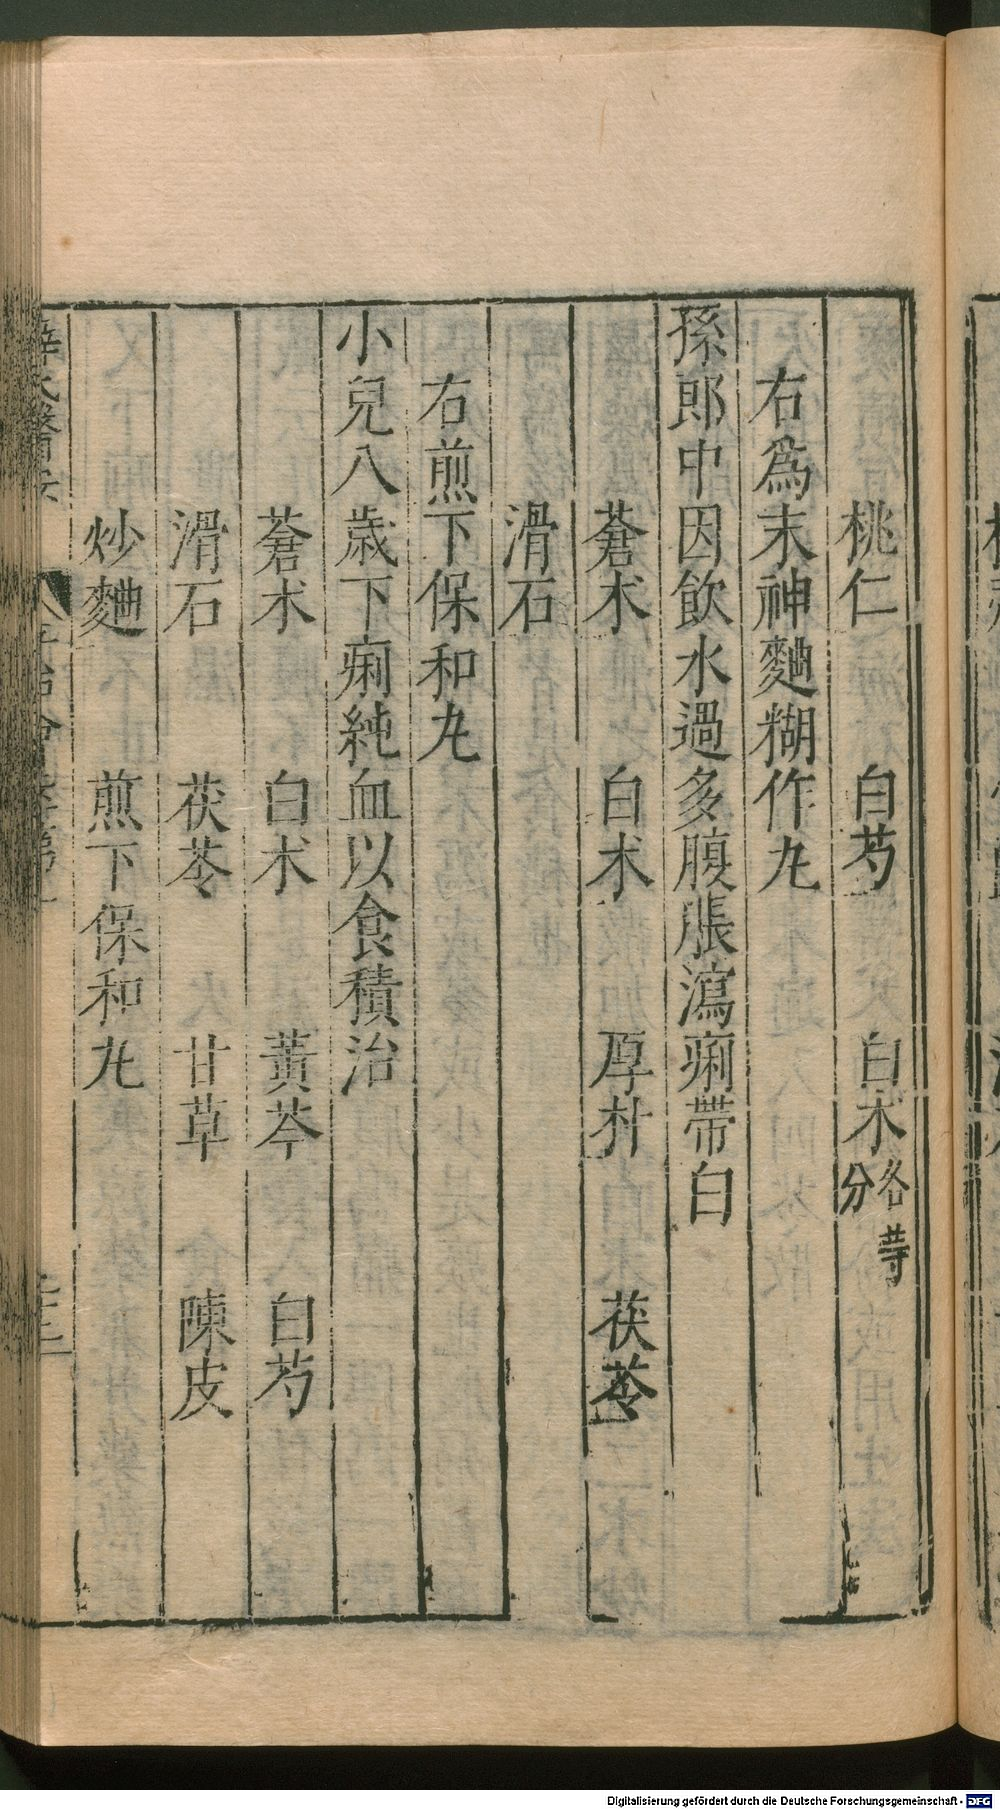 桃仁 白芍 白术各等分
右爲末神麯糊作丸
孫郎中因飲水過多腹脹瀉痢帶白
蒼术 白术 厚朴 茯苓
滑石
右煎下保和丸
小兒八歲下痢純血以食積治
蒼术 白术 黃芩 白芍
滑石 茯苓 甘草 陳皮
炒麯 煎下保和丸
Digitalisierung gefördert durch die Deutsche Forschungsgemeinschaft - DFG